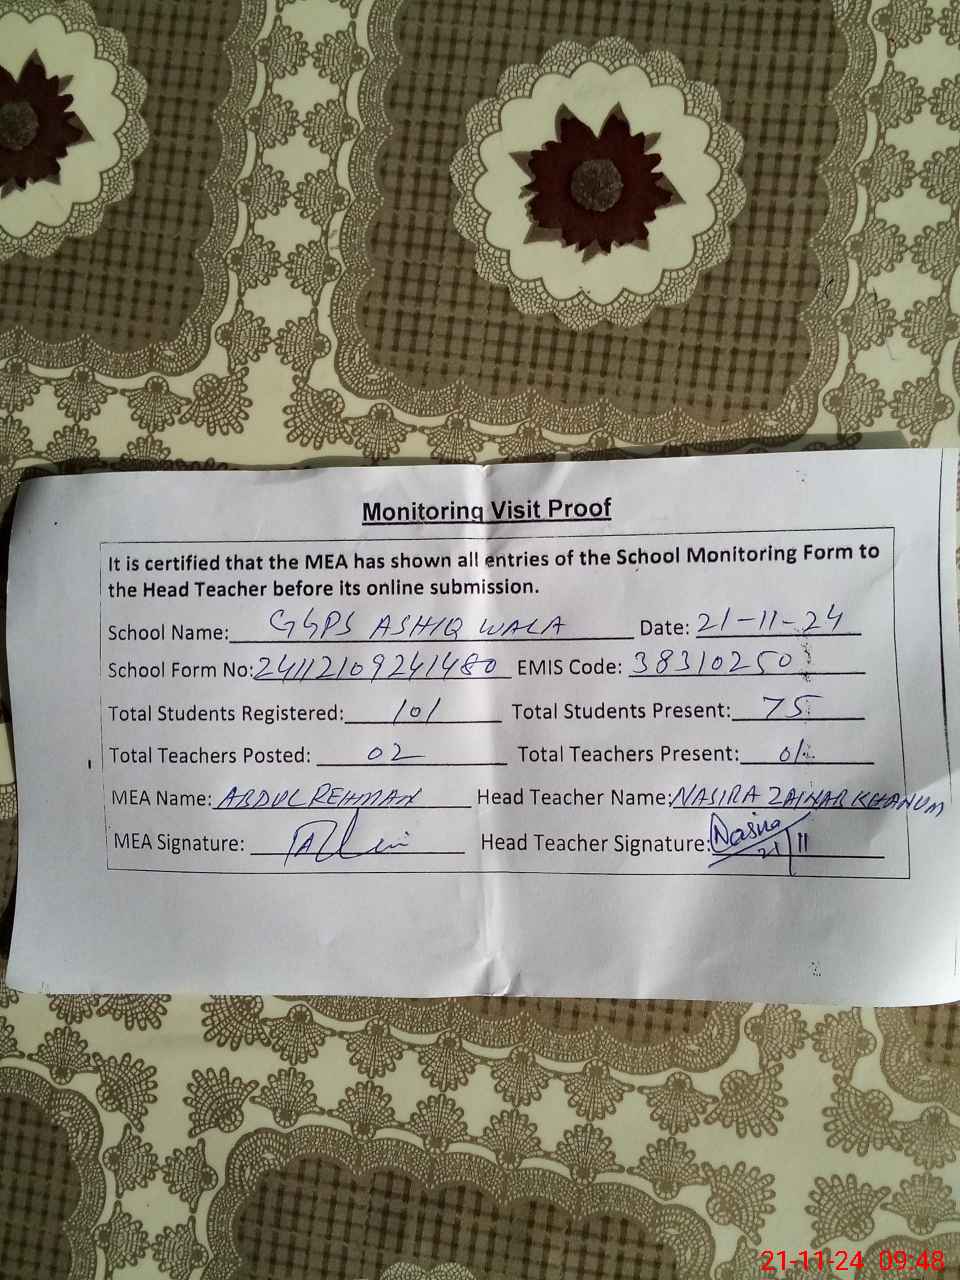 Monitoring Visit Proof
It is certified that the MEA has shown all entries of the School Monitoring Form to
the Head Teacher before its online submission.
School Name: GGPS ASHIQ WALA Date: 21-11-24
School Form No: 24112109241480 EMIS Code: 38310250
Total Students Registered: 101 Total Students Present: 75
Total Teachers Posted: 02 Total Teachers Present: 01
MEA Name: ABDUL REHMAN Head Teacher Name: NASIRA ZAINAB KHANUM
MEA Signature: Head Teacher Signature: Nasira
21/11
21-11-24 09:48